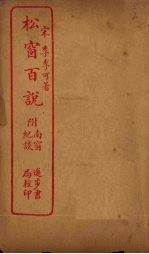 宋 李季可著
松窗百說
附南窗紀談
進步書局校印